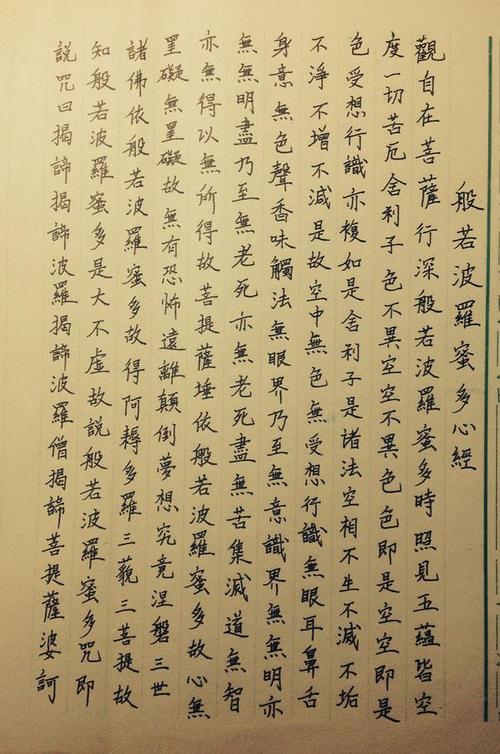 般若波羅蜜多心經
觀自在菩薩行深般若波羅蜜多時照見五蘊皆空
度一切苦厄舍利子色不異空空不異色色即是空空即是
色受想行識亦複如是舍利子是諸法空相不生不滅不垢
不淨不增不減是故空中無色無受想行識無眼耳鼻舌
身意無色聲香味觸法無眼界乃至無意識界無無明亦
無無明盡乃至無老死亦無老死盡無苦集滅道無智
亦無得以無所得故菩提薩埵依般若波羅蜜多故心無
罣礙無罣礙故無有恐怖遠離顛倒夢想究竟涅磐三世
諸佛依般若波羅蜜多故得阿耨多羅三藐三菩提故
知般若波羅蜜多是大不虛故說般若波羅蜜多咒即
說咒曰揭諦揭諦波羅揭諦波羅僧揭諦菩提薩婆訶